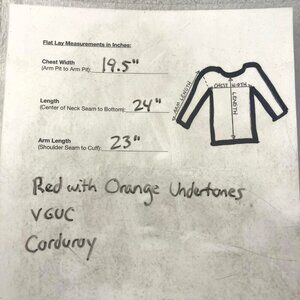 Flat Lay Measurements in Inches:
Chest Width
(Arm Pit to Arm Pit) 19.5"
Length
(Center of Neck Seam to Bottom): 24"
Arm Length
(Shoulder Seam to Cuff): 23"
ARM LENGTH
CHEST WIDTH
LENGTH
Red with Orange Undertones
VGUC
Corduroy